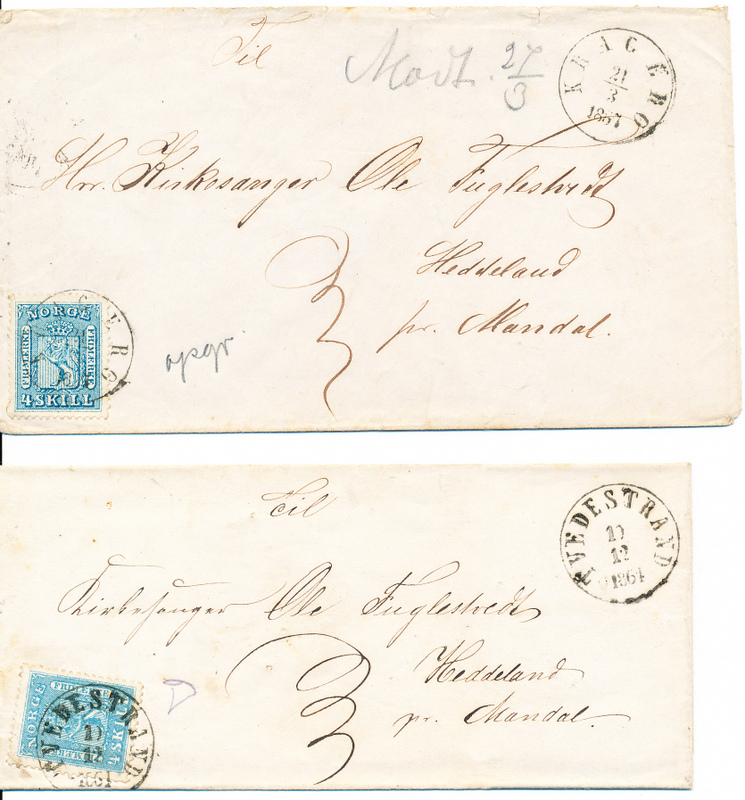 Til
Modt. 27/3
KRAGERO
21
3
1867
Hrr. Kirkesanger Ole Fuglestvedt
Heddeland
pr. Mandal.
3
opgr.
NORGE
FRIMERKE
FRIMERKE
4 SKILL
Til
TVEDESTRAND
19
12
1864
Kirkesanger Ole Fuglestvedt
Heddeland
pr. Mandal.
3
NORGE
4 SK
TVEDESTRAND
19
12
1864